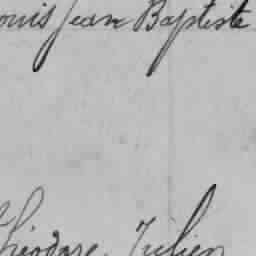 ouis Jean Baptiste
Théodore, Julien